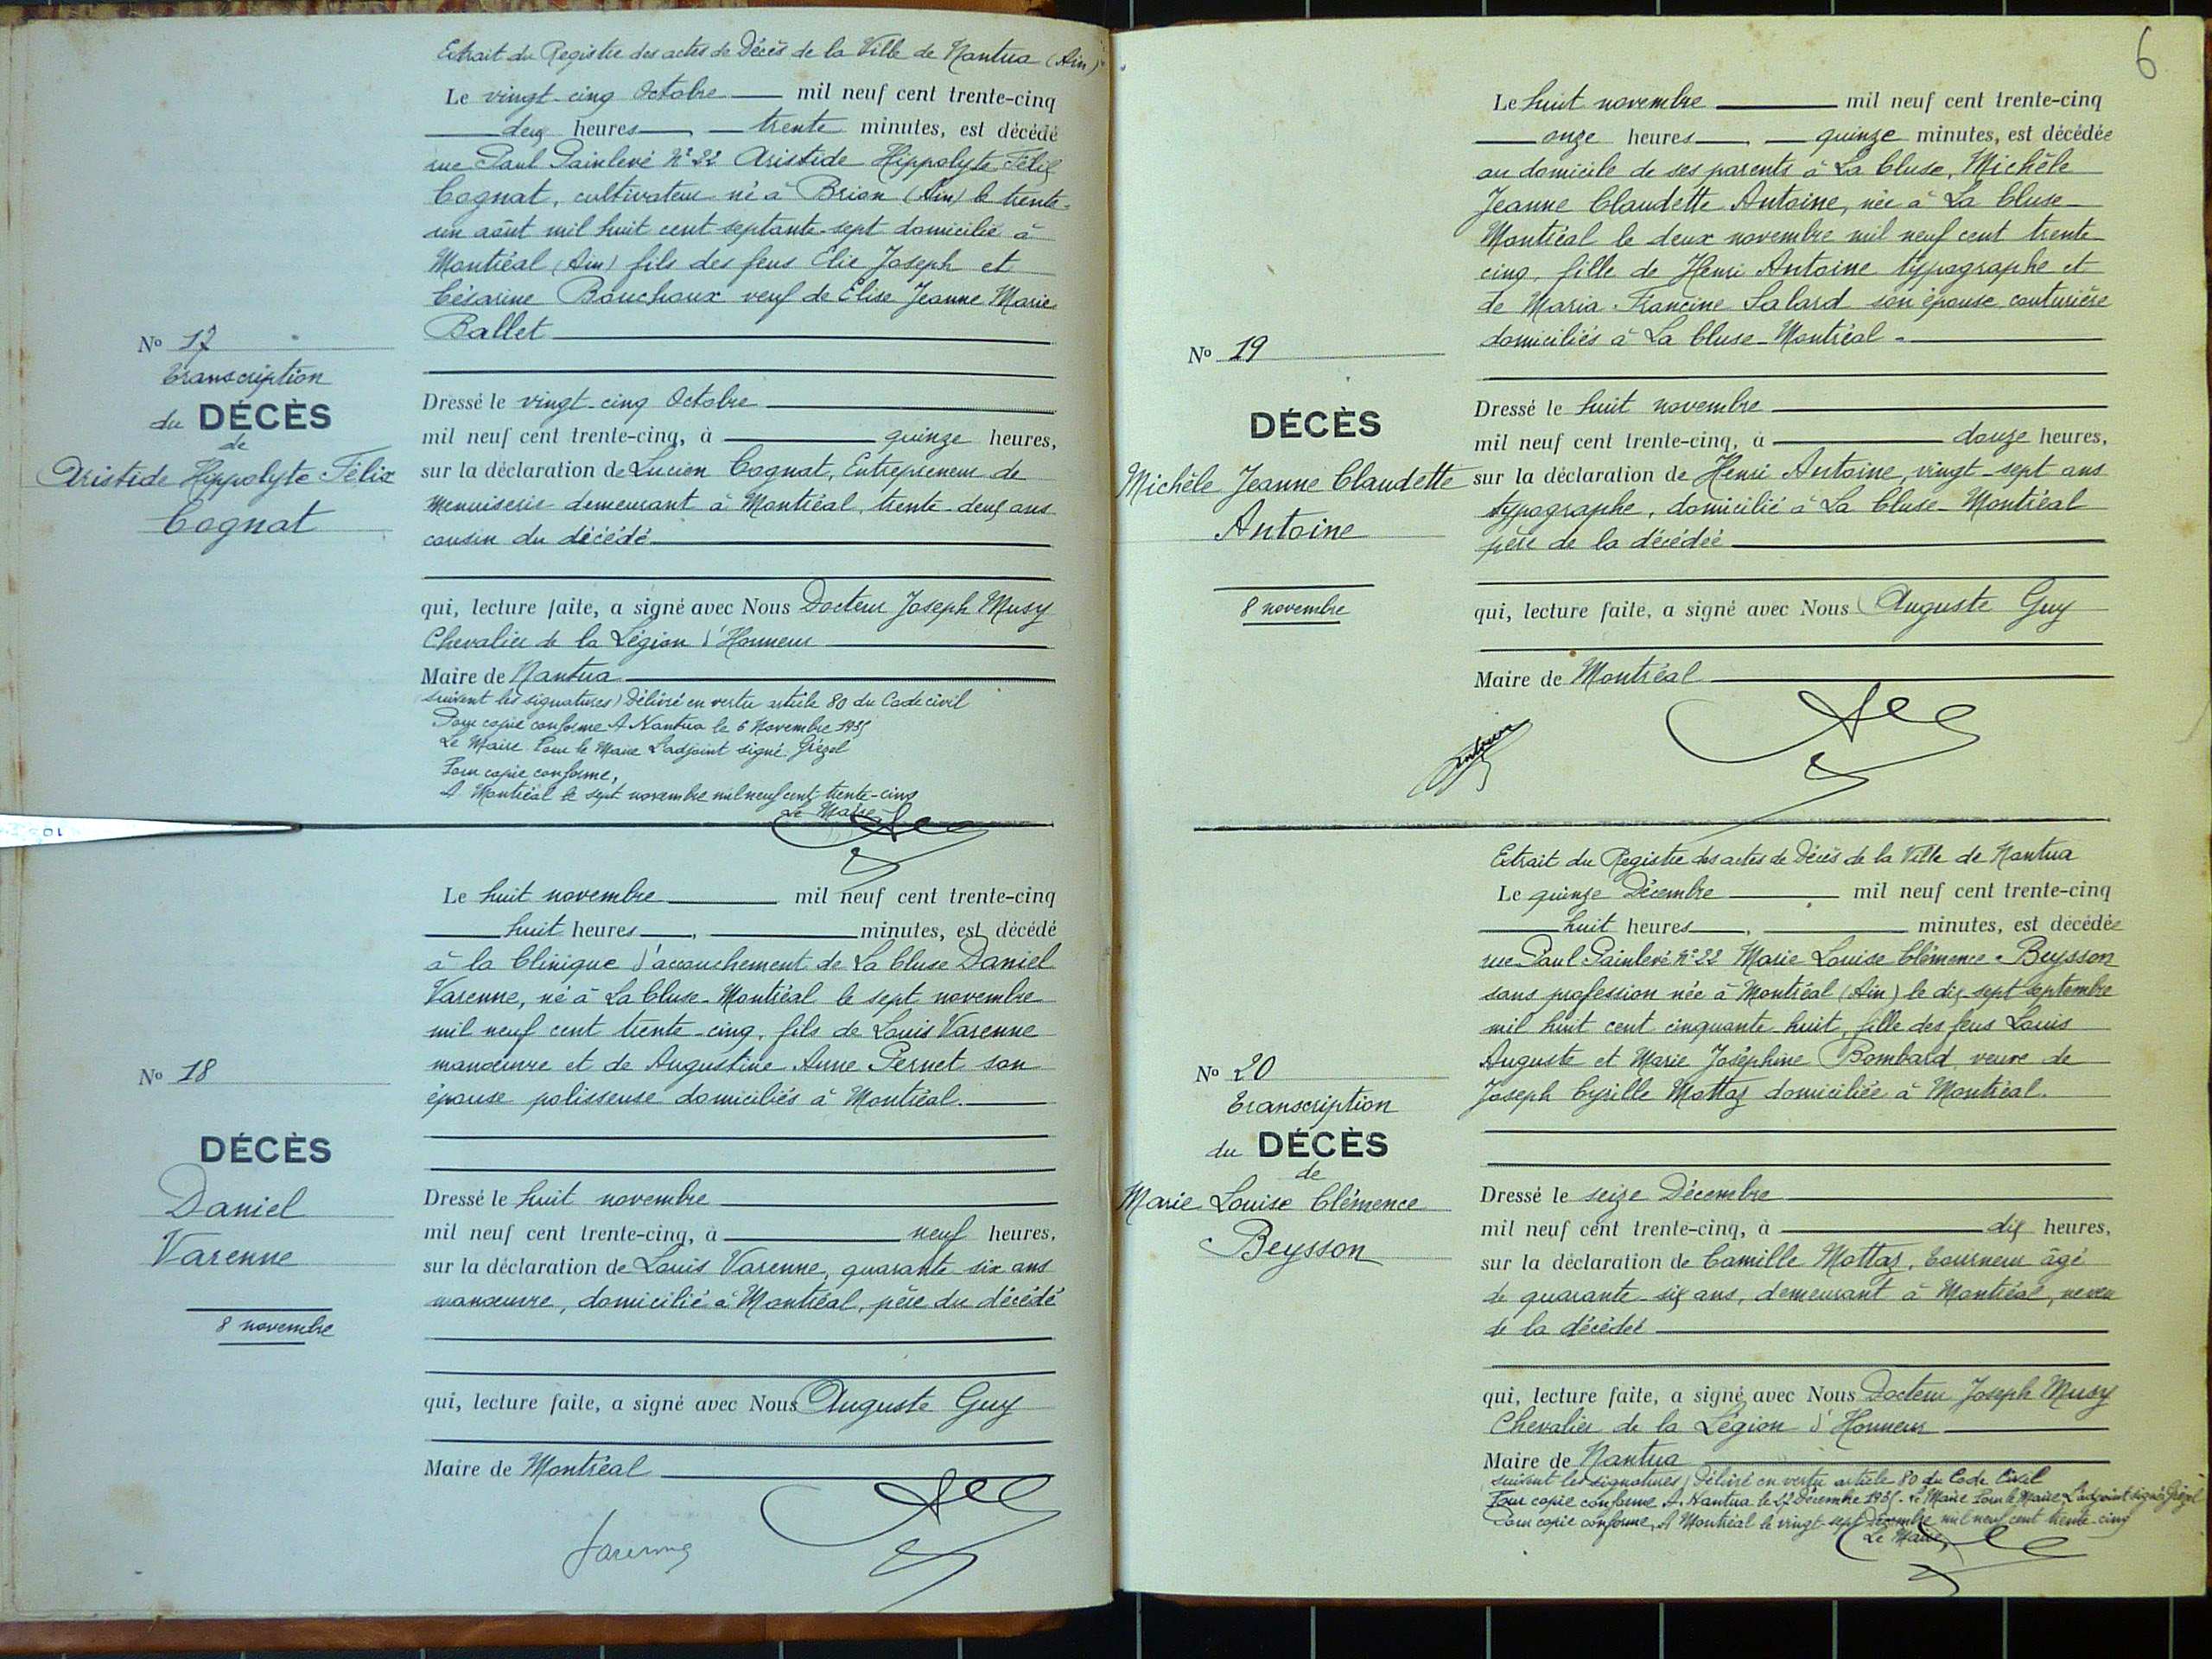 Extrait du Registre des actes de Décès de la Ville de Nantua (Ain)
Le vingt-cinq Octobre mil neuf cent trente-cinq
deux heures, trente minutes, est décédé
rue Paul Painlevé N° 22 Aristide Hippolyte Félix
Cognat, cultivateur né à Brion (Ain) le trente-
un août mil huit cent septante-sept domicilié à
Montréal (Ain) fils des feus Élie Joseph et
Césarine Bouchoux veuf de Élise Jeanne Marie
Ballet
No 17
Transcription
du DÉCÈS
de
Aristide Hippolyte Félix
Cognat
Dressé le vingt-cinq Octobre
mil neuf cent trente-cinq, à quinze heures,
sur la déclaration de Lucien Cognat, Entrepreneur de
menuiserie demeurant à Montréal, trente-deux ans
cousin du décédé
qui, lecture faite, a signé avec Nous Docteur Joseph Musy
Chevalier de la Légion d'Honneur
Maire de Nantua
suivent les signatures) Délivré en vertu article 80 du Code civil
Pour copie conforme A Nantua le 6 Novembre 1935
Le Maire Pour le Maire L'adjoint signé Grézel
Pour copie conforme,
A Montréal le sept novembre mil neuf cent trente-cinq
Le Maire
Le huit novembre mil neuf cent trente-cinq
huit heures, minutes, est décédé
à la Clinique d'accouchement de La Cluse Daniel
Varenne, né à La Cluse-Montréal le sept novembre
mil neuf cent trente-cinq, fils de Louis Varenne
manœuvre et de Augustine Anne Pernet son
épouse polisseuse domiciliés à Montréal.
No 18
DÉCÈS
Daniel
Varenne
8 novembre
Dressé le huit novembre
mil neuf cent trente-cinq, à neuf heures,
sur la déclaration de Louis Varenne, quarante-six ans
manœuvre, domicilié à Montréal, père du décédé
qui, lecture faite, a signé avec Nous Auguste Guy
Maire de Montréal
6
Le huit novembre mil neuf cent trente-cinq
onze heures, quinze minutes, est décédée
au domicile de ses parents à La Cluse, Michèle
Jeanne Claudette Antoine, née à La Cluse-
Montréal le deux novembre mil neuf cent trente
cinq, fille de Henri Antoine typographe et
de Maria Francine Salard son épouse couturière
domiciliés à La Cluse-Montréal.
No 19
DÉCÈS
Michèle Jeanne Claudette
Antoine
8 novembre
Dressé le huit novembre
mil neuf cent trente-cinq, à douze heures,
sur la déclaration de Henri Antoine, vingt-sept ans
typographe, domicilié à La Cluse-Montréal
père de la décédée
qui, lecture faite, a signé avec Nous Auguste Guy
Maire de Montréal
Antoine
Extrait du Registre des actes de Décès de la Ville de Nantua
Le quinze Décembre mil neuf cent trente-cinq
huit heures, minutes, est décédée
rue Paul Painlevé N° 22 Marie Louise Clémence Beysson
sans profession née à Montréal (Ain) le dix sept septembre
mil huit cent cinquante-huit, fille des feus Louis
Auguste et Marie Joséphine Bombard veuve de
Joseph Cyrille Mottaz domiciliée à Montréal.
No 20
Transcription
du DÉCÈS
de
Marie Louise Clémence
Beysson
Dressé le seize Décembre
mil neuf cent trente-cinq, à dix heures,
sur la déclaration de Camille Mottaz, tourneur âgé
de quarante-six ans, demeurant à Montréal, neveu
de la décédée
qui, lecture faite, a signé avec Nous Docteur Joseph Musy
Chevalier de la Légion d'Honneur
Maire de Nantua
suivent les signatures) Délivré en vertu article 80 du Code Civil
Pour copie conforme A Nantua le 27 Décembre 1935. Le Maire Pour le Maire L'adjoint signé Grézel
Pour copie conforme, A Montréal le vingt-sept Décembre mil neuf cent trente-cinq
Le Maire,